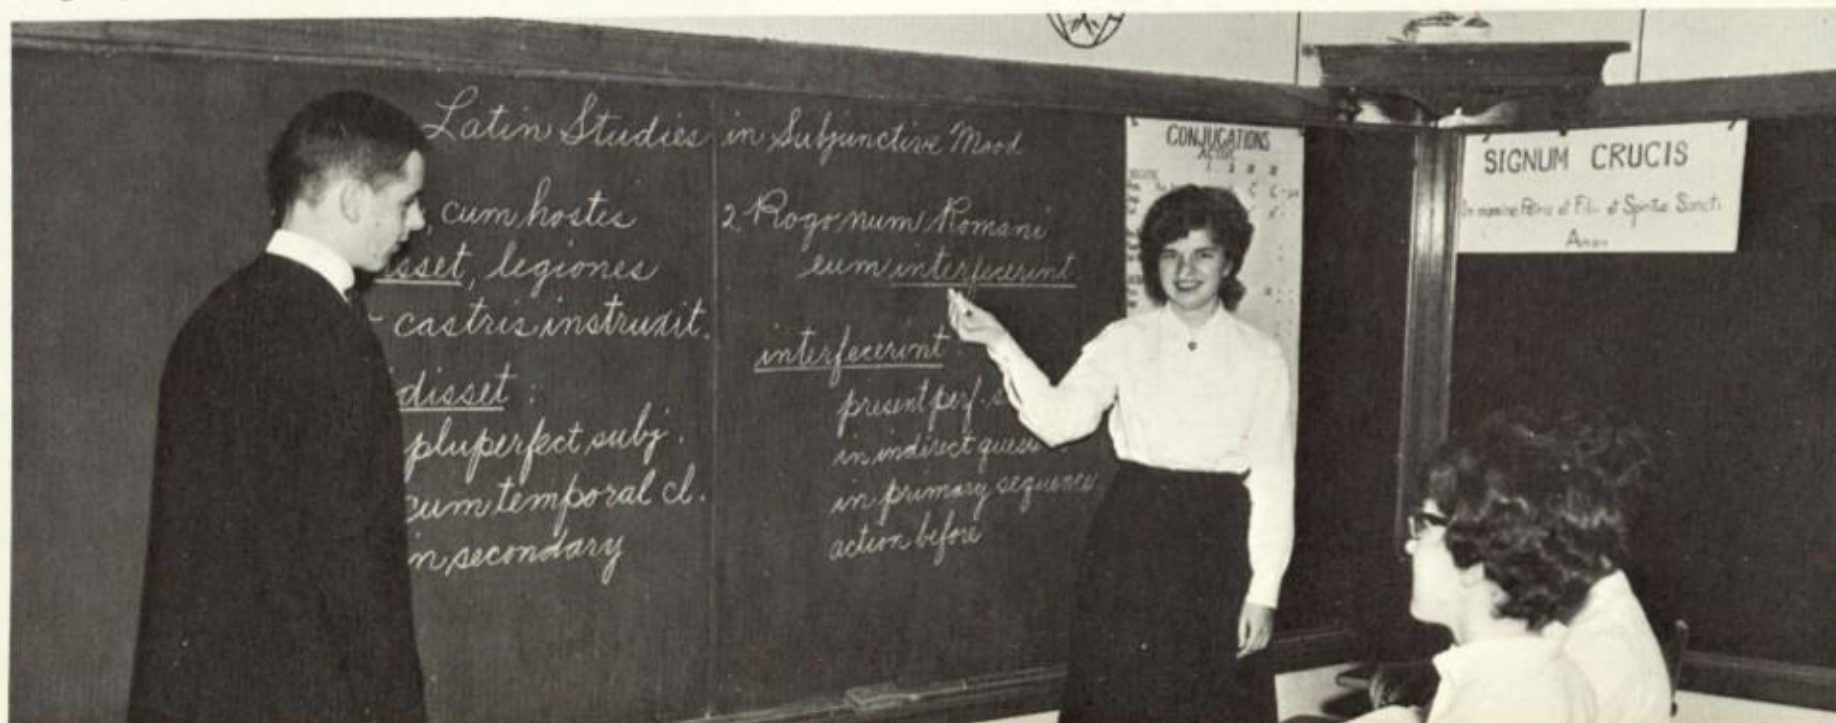 Latin Studies in Subjunctive Mood
cum hostes
isset, legiones
castris instruxit.
disset:
pluperfect subj.
cum temporal cl.
in secondary
2. Rogo num Romani
eum interfecerint.
interfecerint
present perf.
in indirect
in primary sequence
action before
CONJUGATIONS
SIGNUM CRUCIS
In nomine Patris et Filii et Spiritus Sancti
Amen